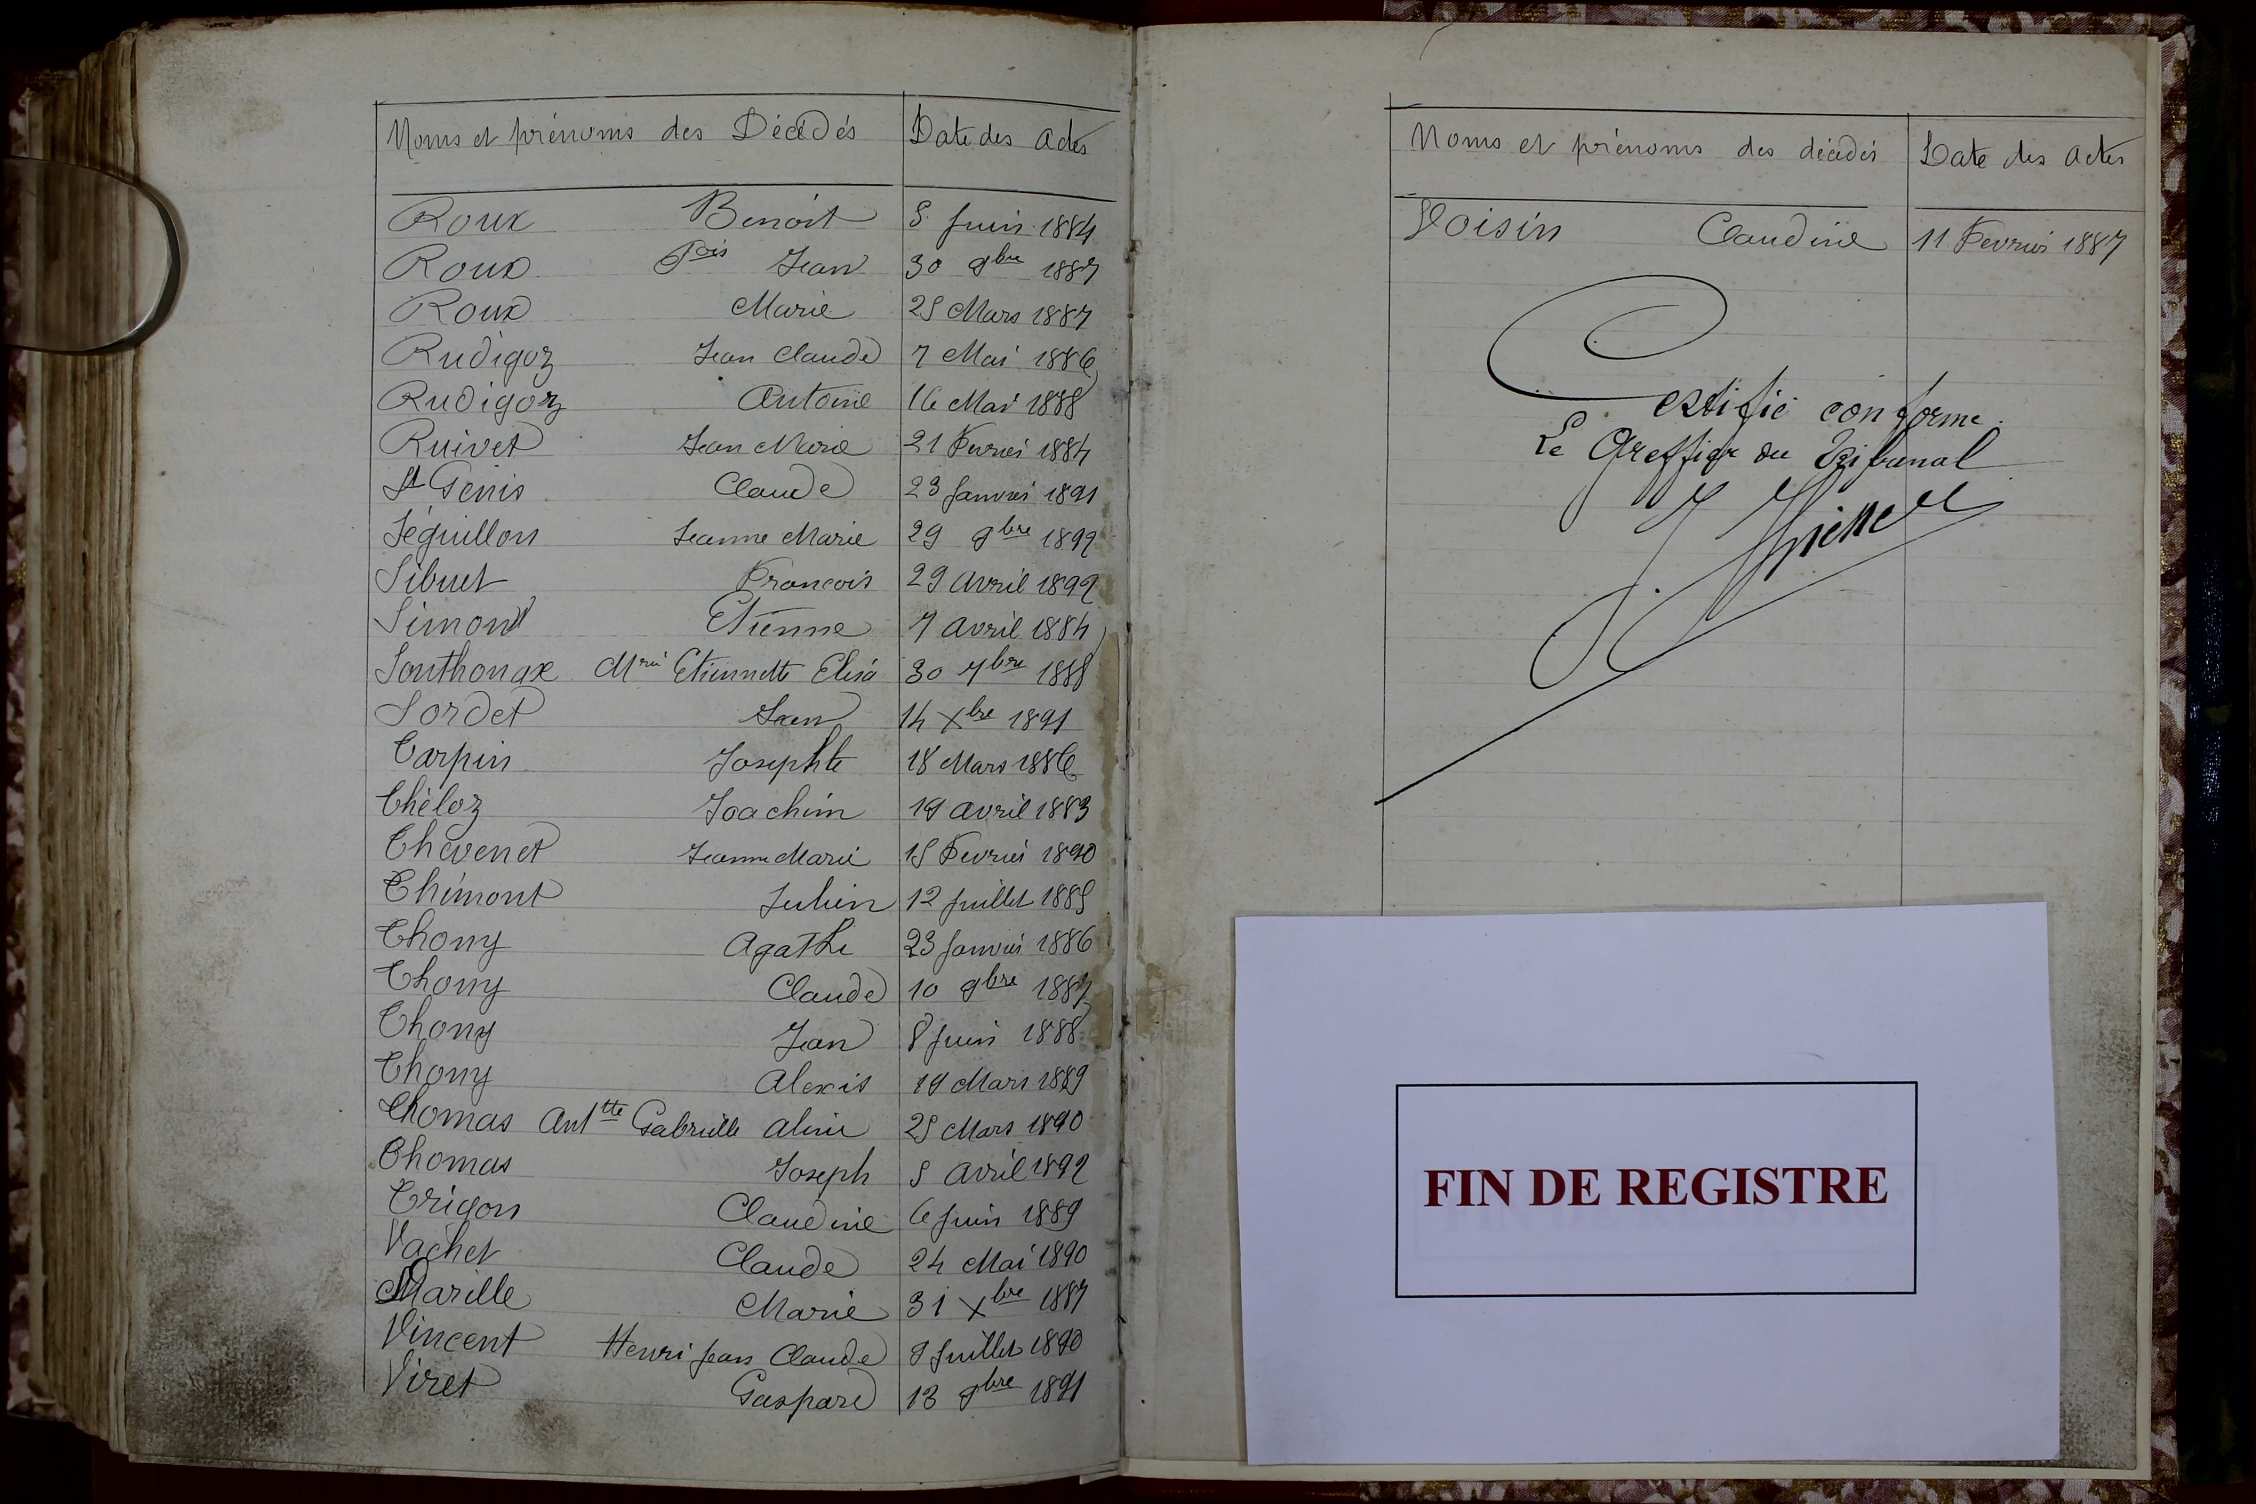 Noms et prénoms des Décédés Date des actes
Roux Benoit 5 Juin 1884
Roux Fçois Jean 30 9bre 1887
Roux Marie 25 Mars 1887
Rudigoz Jean Claude 7 Mai 1886
Rudigoz Antoine 16 Mai 1888
Ruivet Jean Marie 21 Fevrier 1884
St Genis Claude 23 Janvier 1891
Séguillon Jeanne Marie 29 9bre 1892
Sibuet Francois 29 Avril 1892
Simond Etienne 7 Avril 1884
Southonax Mrie Etiennette Elisa 30 7bre 1888
Sordet Jean 14 Xbre 1891
Tarpin Josephte 18 Mars 1886
Thèloz Joachim 19 Avril 1883
Thevenet Jeanne Marie 15 Fevrier 1890
Thimont Julien 12 Juillet 1885
Thony Agathe 23 Janvier 1886
Thony Claude 10 9bre 1887
Thony Jean 8 Juin 1888
Thony Alexis 19 Mars 1889
Thomas Anttte Gabrielle Aline 25 Mars 1890
Thomas Joseph 5 Avril 1892
Trigon Claudine 6 Juin 1889
Vachet Claude 24 Mai 1890
Marille Marie 31 Xbre 1887
Vincent Henri Jean Claude 9 Juillet 1890
Viret Gaspard 13 9bre 1891
Noms et prénoms des décédés Date des actes
Voisin Claudine 11 Fevrier 1887
Certifié conforme
Le Greffier du Tribunal
FIN DE REGISTRE